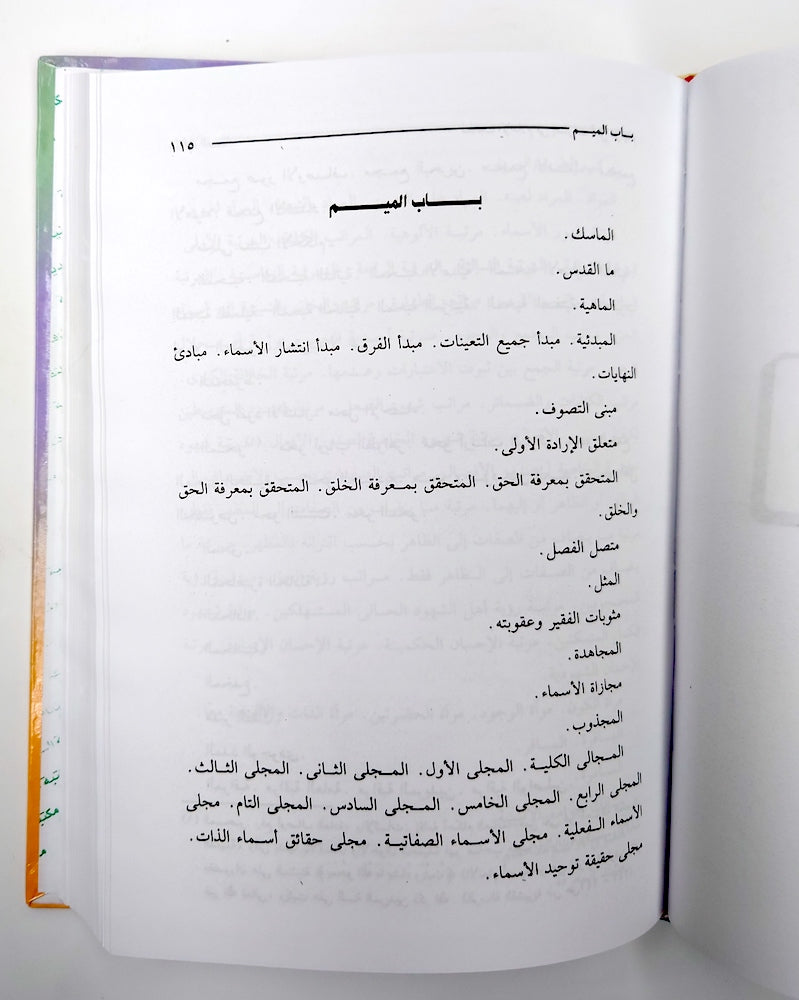 بـاب الميـم
١١٥
بـــاب الميـــم
الماسك.
ما القدس.
الماهية.
المبدئية. مبدأ جميع التعينات. مبدأ الفرق. مبدأ انتشار الأسماء. مبادئ
النهايات.
مبنى التصوف.
متعلق الإرادة الأولى.
المتحقق بمعرفة الحق. المتحقق بمـعرفة الخلق. المتحقق بمعرفة الحق
والخلق.
متصل الفصل.
المثل.
مثوبات الفقير وعقوبته.
المجاهدة.
مجازاة الأسماء.
المجذوب.
المجالى الكلية. المجلى الأول. المـجلى الثانى. المجلى الثالث.
المجلى الرابع. المجلى الخامس. المـجلى السادس. المجلى التام. مجلى
الأسماء الـفعلية. مجلى الأسماء الصفاتيـة. مجلى حقائق أسـماء الذات.
مجلى حقيقة توحيد الأسماء.